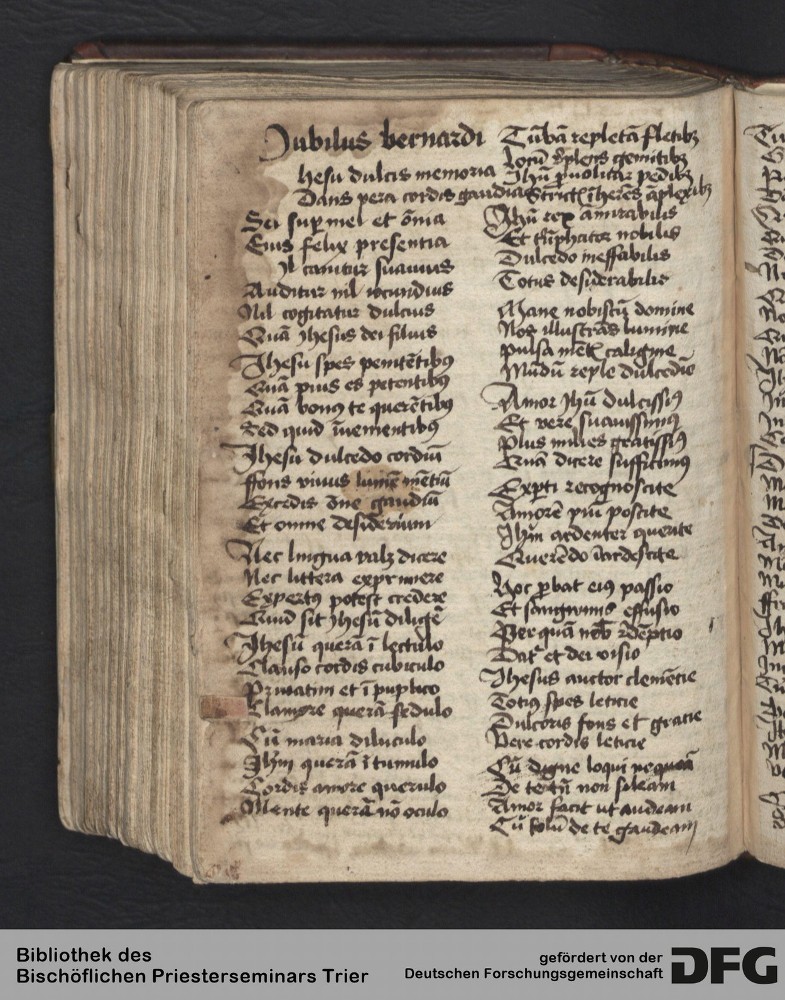 Jubilus bernardi
hesu dulcis memoria
Dans vera cordis gaudia
Sed sup mel et õnia
Eius felix presentia
Nil canitur suavius
Auditur nil iocundius
Nil cogitatur dulcius
Quã Jhesus dei filius
Jhesu spes penitẽtibꝯ
Quã pius es petentibꝯ
Quã bonꝯ te querẽtibꝯ
Sed quid ĩvenientibꝯ
Jhesu dulcedo cordiũ
ffons vivus lumẽ mẽtiũ
Excedis õne gaudiũ
Et omne desiderium
Nec lingua valꝫ dicere
Nec littera exprimere
Expertꝯ potest credere
Quid sit Jhesũ diligẽ
Jhesũ querã ĩ lectulo
Clauso cordis cubiculo
Privatim et ĩ puplico
Clamore querã sedulo
Cũ maria diluculo
Jhm̃ querã ĩ tumulo
Cordis amore querulo
Mente querã nõ oculo
Tũbã repletã fletibꝫ
Locũ gemitibꝫ
Jhũ pvolutar pedibꝫ
Strictꝭ ĩherẽs ãplexibꝫ
Jhũ rex amirabilis
Et triũphator nobilis
Dulcedo ineffabilis
Totus desiderabilis
Mane nobiscũ domine
Nos illustrãs lumine
Pulsa mẽtꝭ caligine
Mũdũ reple dulcedĩe
Amor Jhũ dulcissiꝯ
Et vere suavissimꝯ
Plus milies gratissiꝯ
Quã dicere sufficimꝯ
Expti recognoscite
Amorẽ piũ poscite
Jhm̃ ardenter querite
Querẽdo ĩardescite
Hoc pbat eiꝯ passio
Et sanguinis effusio
Per quã nob̃ rẽdẽptio
Datʳ et dei visio
Jhesus auctor clemẽtie
Totiꝯ spes leticie
Dulcoris fons et gratie
Vere cordis leticie
Cũ digne loqui nequeã
De te tñ non sileam
Amor facit ut audeam
Cũ solũ de te gaudeam
Bibliothek des
Bischöflichen Priesterseminars Trier
gefördert von der
Deutschen Forschungsgemeinschaft
DFG